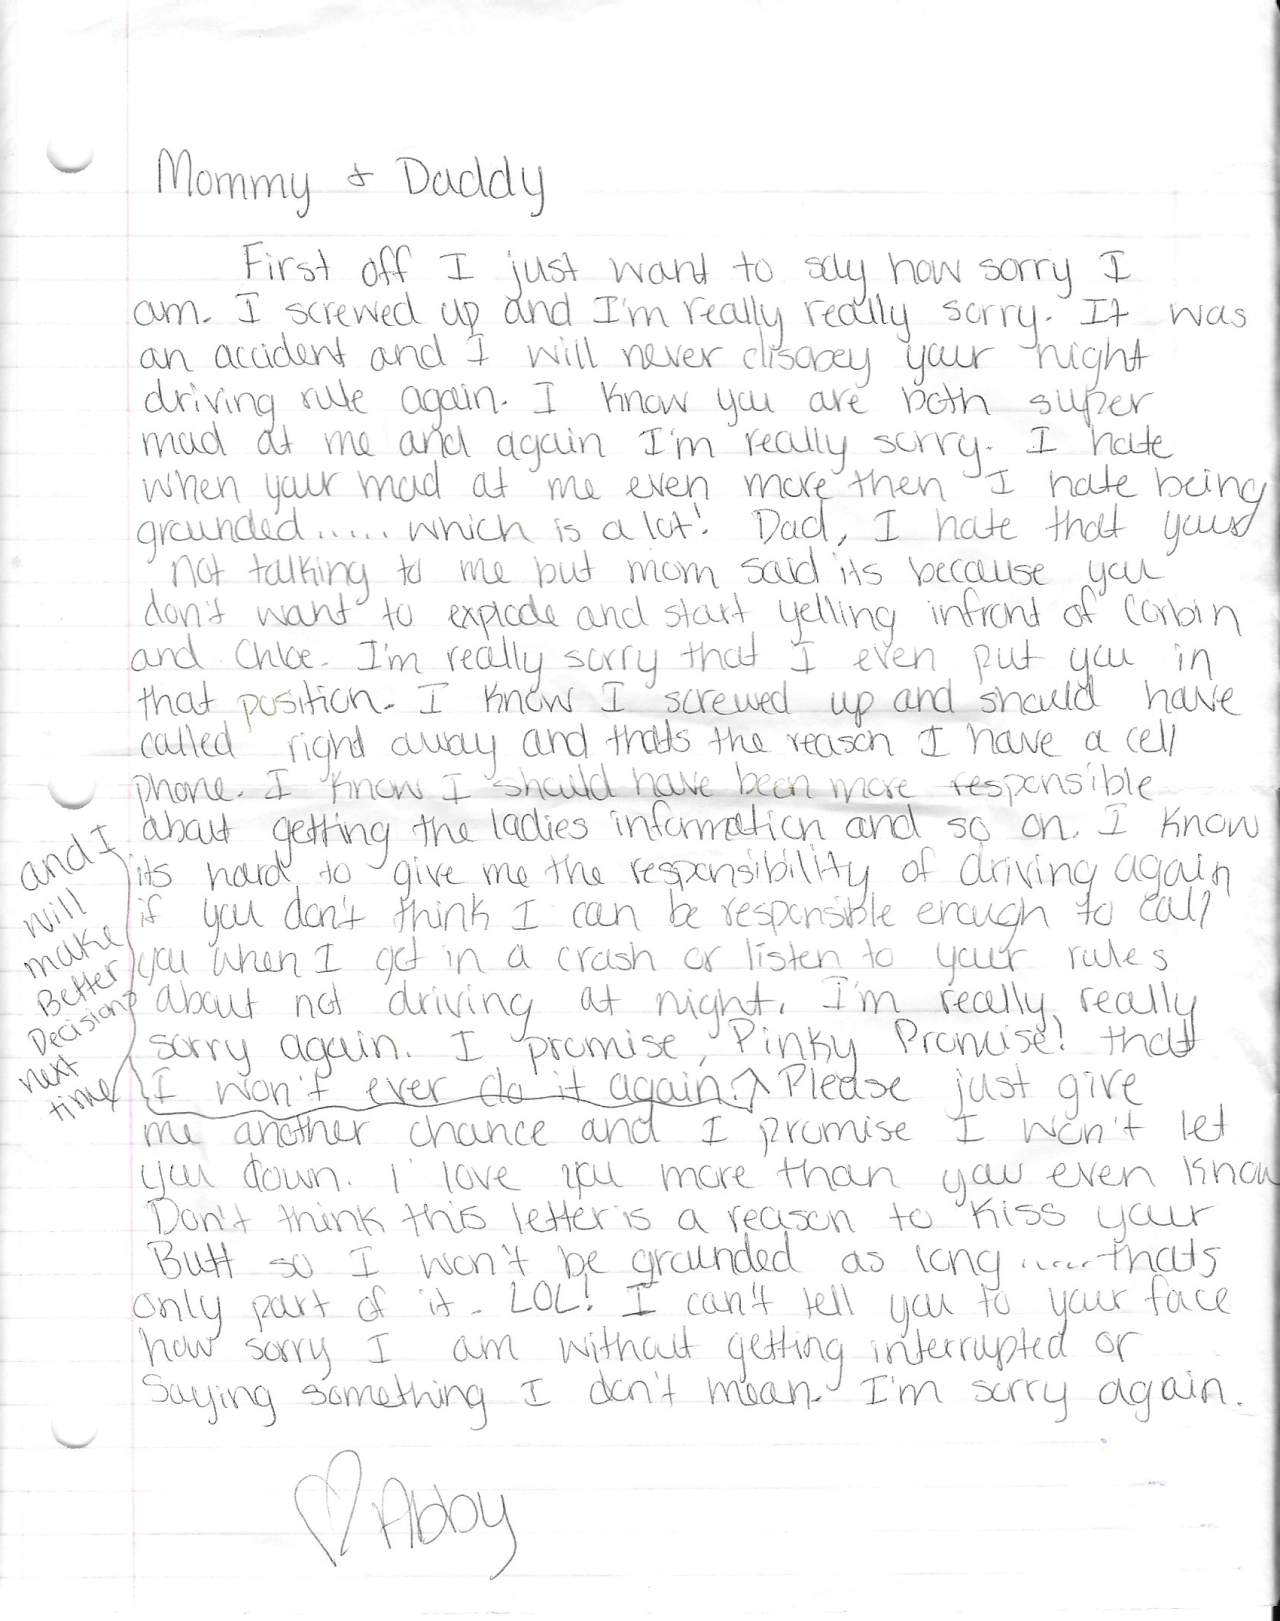 Mommy & Daddy
First off I just want to say how sorry I
am. I screwed up and I'm really really sorry. It was
an accident and I will never disobey your night
driving rule again. I know you are both super
mad at me and again I'm really sorry. I hate
when your mad at me even more then I hate being
grounded..... which is a lot! Dad, I hate that your
not talking to me but mom said its because you
don't want to explode and start yelling infront of Corbin
and Chloe. I'm really sorry that I even put you in
that position. I know I screwed up and should have
called right away and thats the reason I have a cell
phone. I know I should have been more responsible
about getting the ladies information and so on. I know
its hard to give me the responsibility of driving again
if you don't think I can be responsible enough to call
you when I get in a crash or listen to your rules
about not driving at night. I'm really, really
sorry again. I promise, Pinky Promise! that
I won't ever do it again. Please just give
and I
will
make
Better
Decisions
next
time
me another chance and I promise I won't let
you down. I love you more than you even know
Don't think this letter is a reason to kiss your
Butt so I won't be grounded as long ..... thats
only part of it - LOL! I can't tell you to your face
how sorry I am without getting interrupted or
Saying something I don't mean. I'm sorry again.
♡ Abby